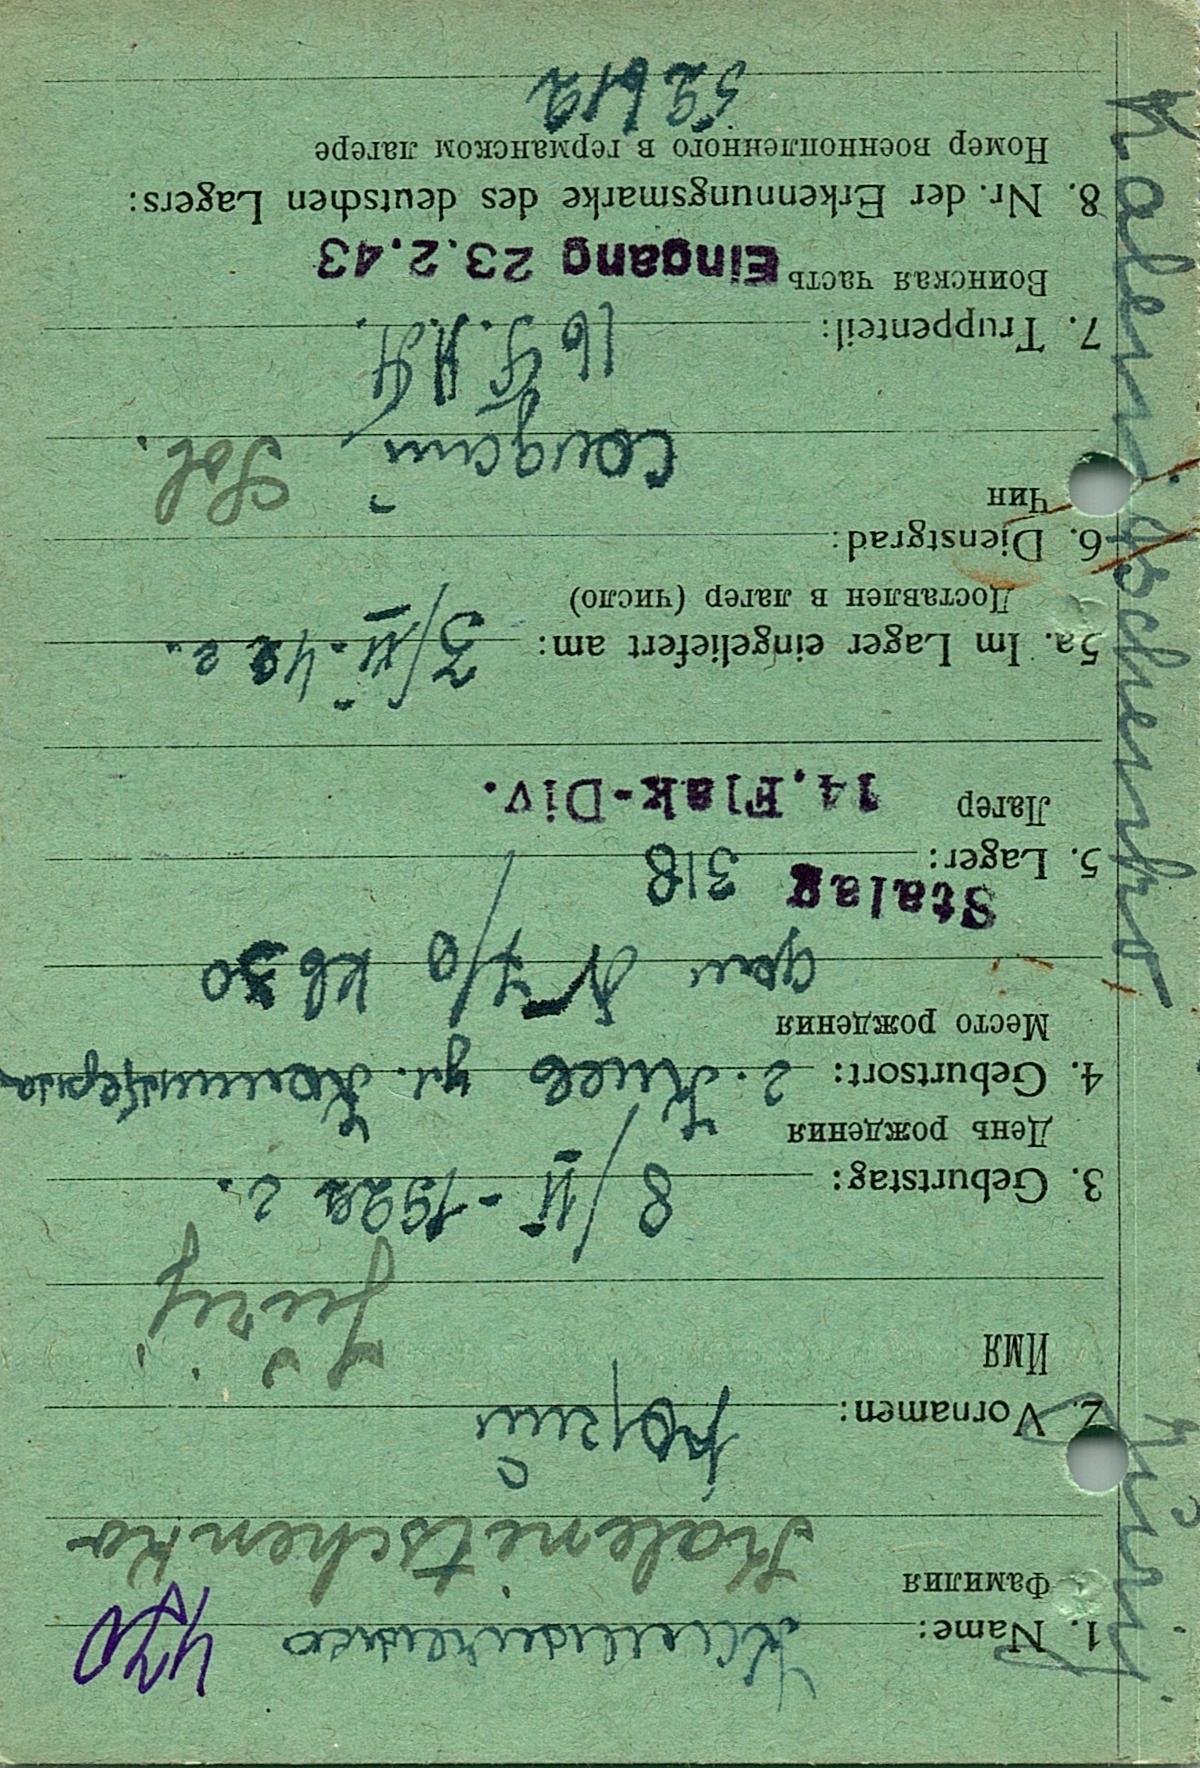 1. Name: Калениченко 420
Фамилия
Kalenitschenko
2. Vornamen: Юрий
Имя
Jurij
3. Geburtstag: 1922 г.
День рождения
4. Geburtsort: г. Киев ул. Коминтерна
Место рождения
дом N кв 30
5. Lager: Stalag 318
Лагерь
14. Flak-Div.
5a. Im Lager eingeliefert am: 42 г.
Доставлен в лагерь (число)
6. Dienstgrad:
Чин
солдат Sol.
7. Truppenteil: 16
Воинская часть Eingang 23.2.43
8. Nr. der Erkennungsmarke des deutschen Lagers:
Номер военнопленного в германском лагере
52612
Kalenitschenko Jurij.